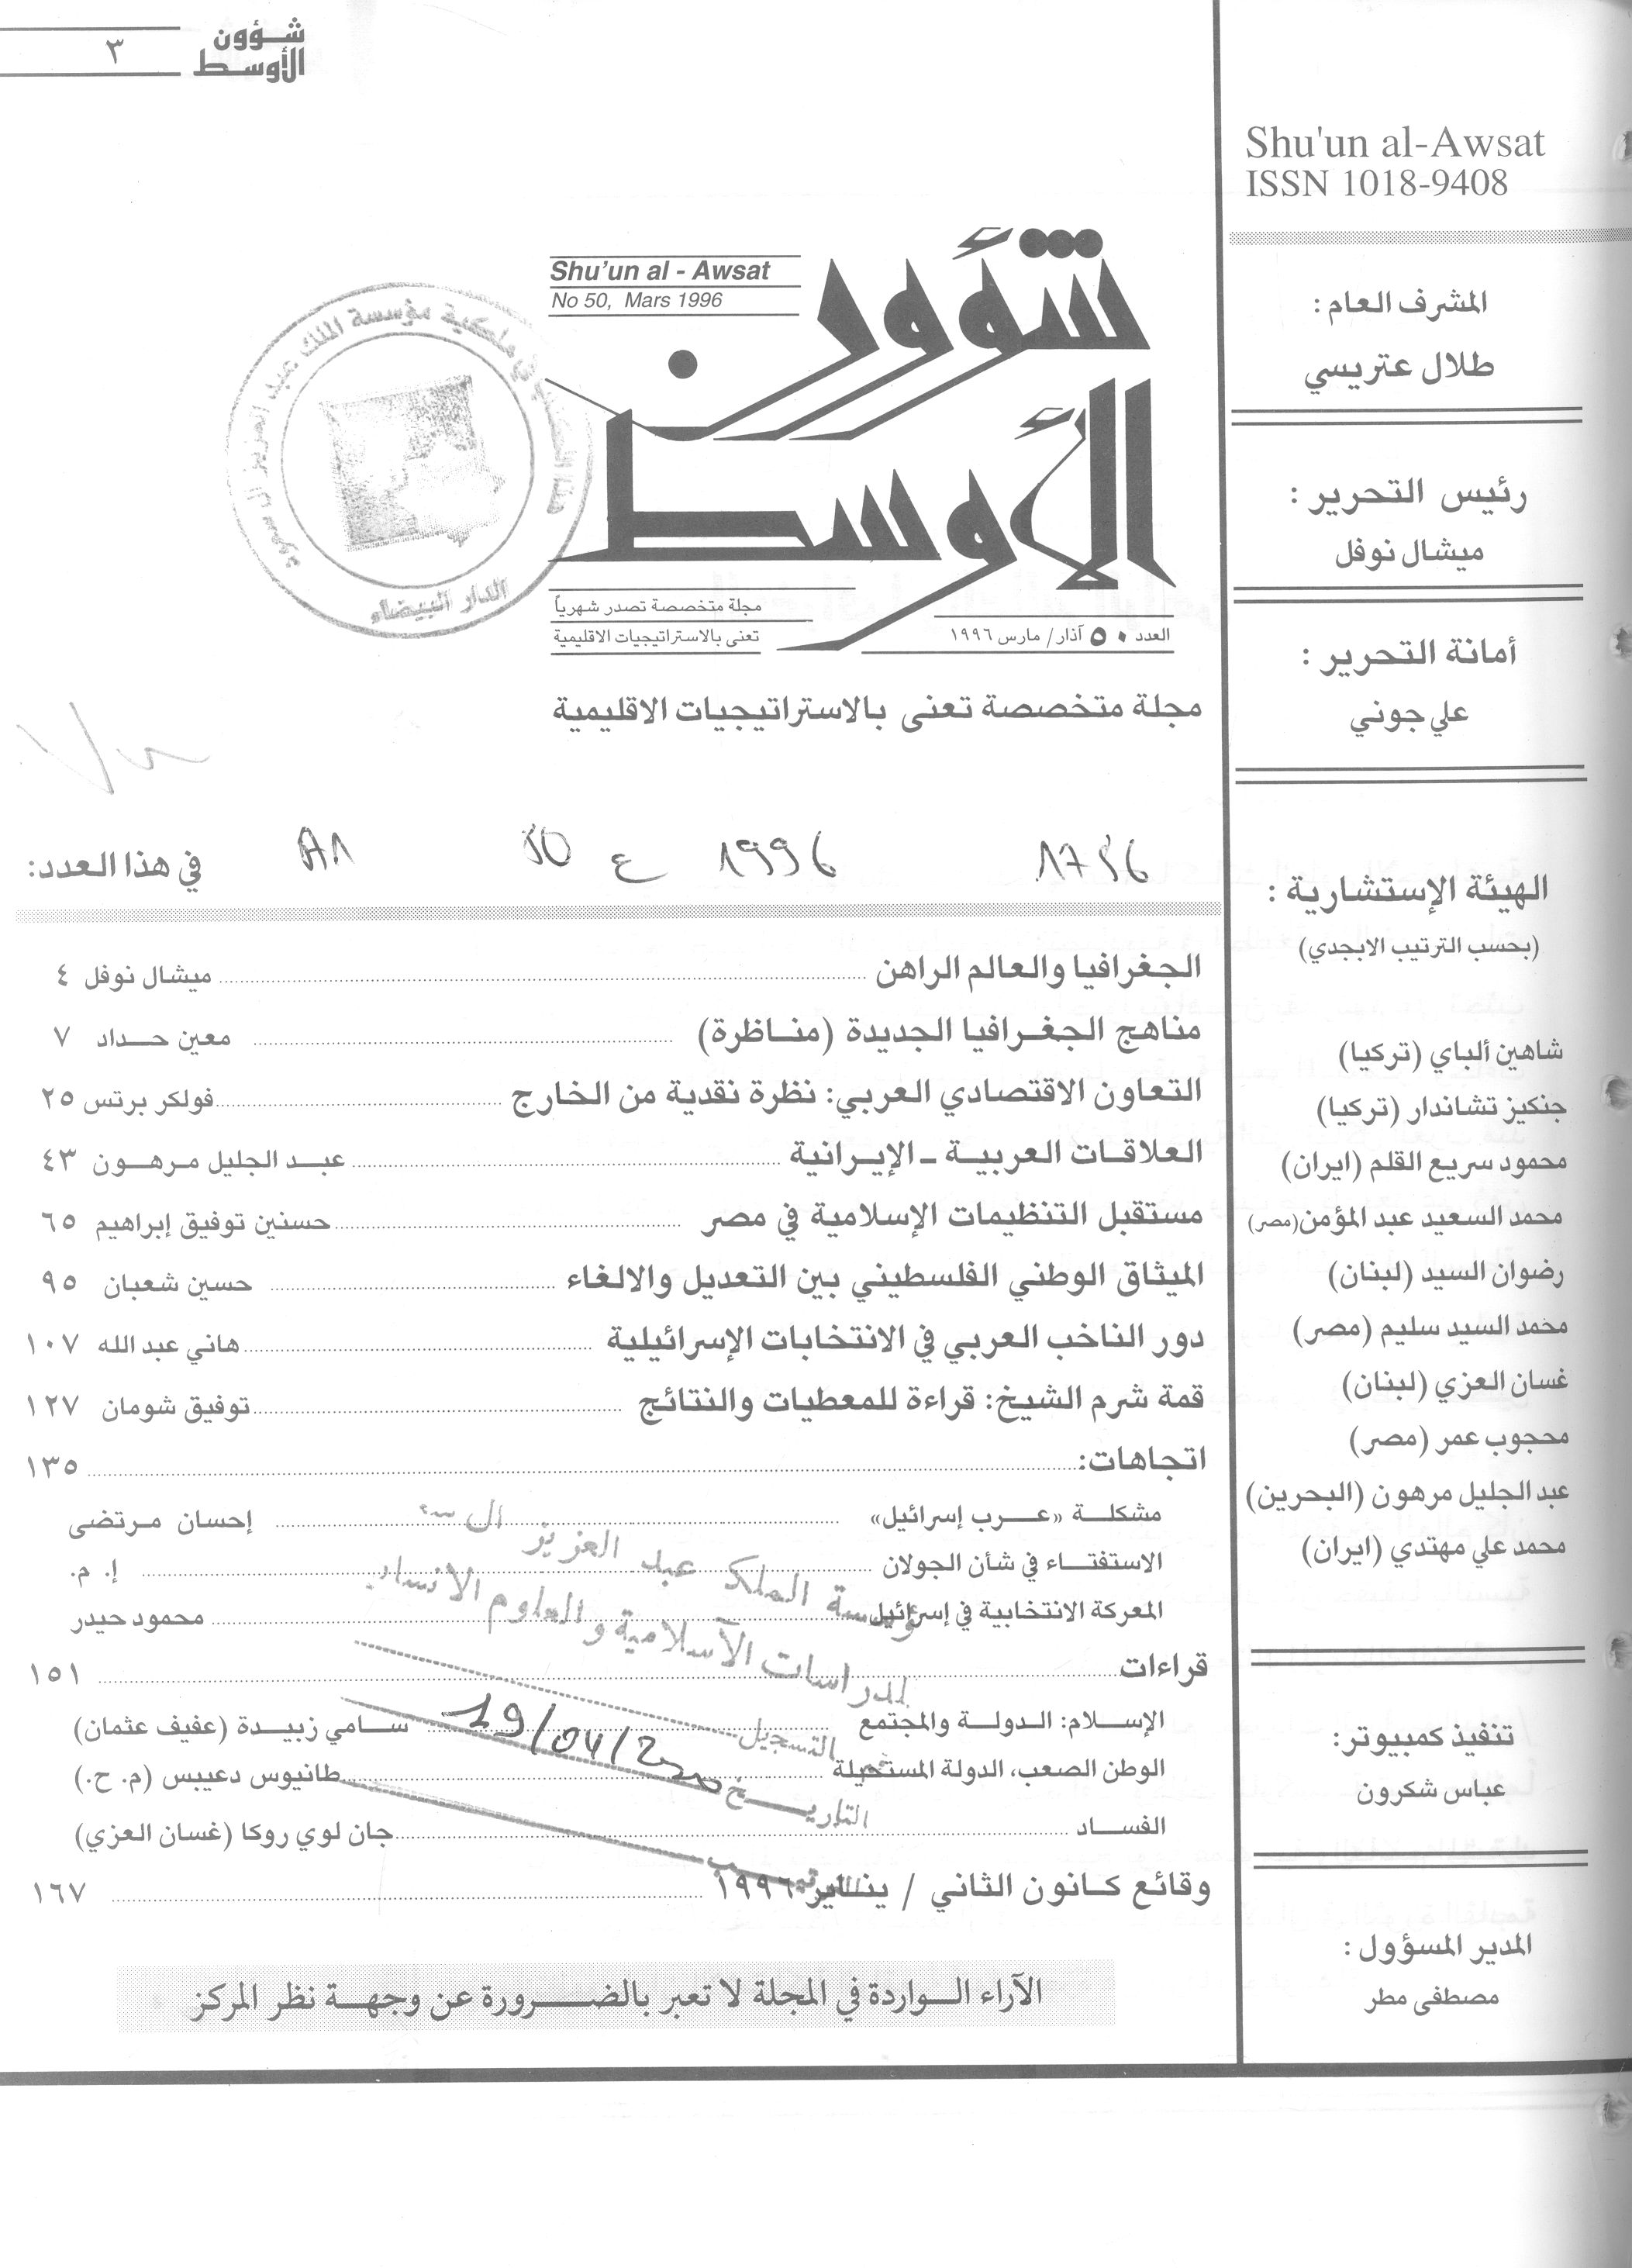 شؤون
الأوسط
٣
Shu'un al-Awsat
ISSN 1018-9408
المشرف العام :
طلال عتريسي
رئيس التحرير :
ميشال نوفل
أمانة التحرير :
علي جوني
الهيئة الإستشارية :
(بحسب الترتيب الابجدي)
شاهين ألباي (تركيا)
جنكيز تشاندار (تركيا)
محمود سريع القلم (ايران)
محمد السعيد عبد المؤمن (مصر)
رضوان السيد (لبنان)
محمد السيد سليم (مصر)
غسان العزي (لبنان)
محجوب عمر (مصر)
عبد الجليل مرهون (البحرين)
محمد علي مهتدي (ايران)
تنفيذ كمبيوتر:
عباس شكرون
المدير المسؤول :
مصطفى مطر
Shu'un al - Awsat
No 50, Mars 1996
شؤون
الأوسط
مجلة متخصصة تصدر شهرياً
تعنى بالاستراتيجيات الاقليمية
العدد ٥٠ آذار/ مارس ١٩٩٦
مؤسسة الملك عبد العزيز
الدار البيضاء
مجلة متخصصة تعنى بالاستراتيجيات الاقليمية
1996 ع 50
في هذا العدد:
الجغرافيا والعالم الراهن ميشال نوفل ٤
مناهج الجغرافيا الجديدة (مناظرة) معين حداد ٧
التعاون الاقتصادي العربي: نظرة نقدية من الخارج فولكر برتس ٢٥
العلاقات العربية - الإيرانية عبد الجليل مرهون ٤٣
مستقبل التنظيمات الإسلامية في مصر حسنين توفيق إبراهيم ٦٥
الميثاق الوطني الفلسطيني بين التعديل والالغاء حسين شعبان ٩٥
دور الناخب العربي في الانتخابات الإسرائيلية هاني عبد الله ١٠٧
قمة شرم الشيخ: قراءة للمعطيات والنتائج توفيق شومان ١٢٧
اتجاهات: ١٣٥
مشكلة «عرب إسرائيل» إحسان مرتضى
الاستفتاء في شأن الجولان إ. م.
المعركة الانتخابية في إسرائيل محمود حيدر
قراءات ١٥١
الإسلام: الدولة والمجتمع سامي زبيدة (عفيف عثمان)
الوطن الصعب، الدولة المستحيلة طانيوس دعيبس (م. ح.)
الفساد جان لوي روكا (غسان العزي)
وقائع كانون الثاني / يناير ١٩٩٦ ١٦٧
الملك عبد العزيز
للدراسات الاسلامية والعلوم الانسانية
التسجيل
التاريخ 19/04/2000
الآراء الواردة في المجلة لا تعبر بالضرورة عن وجهة نظر المركز